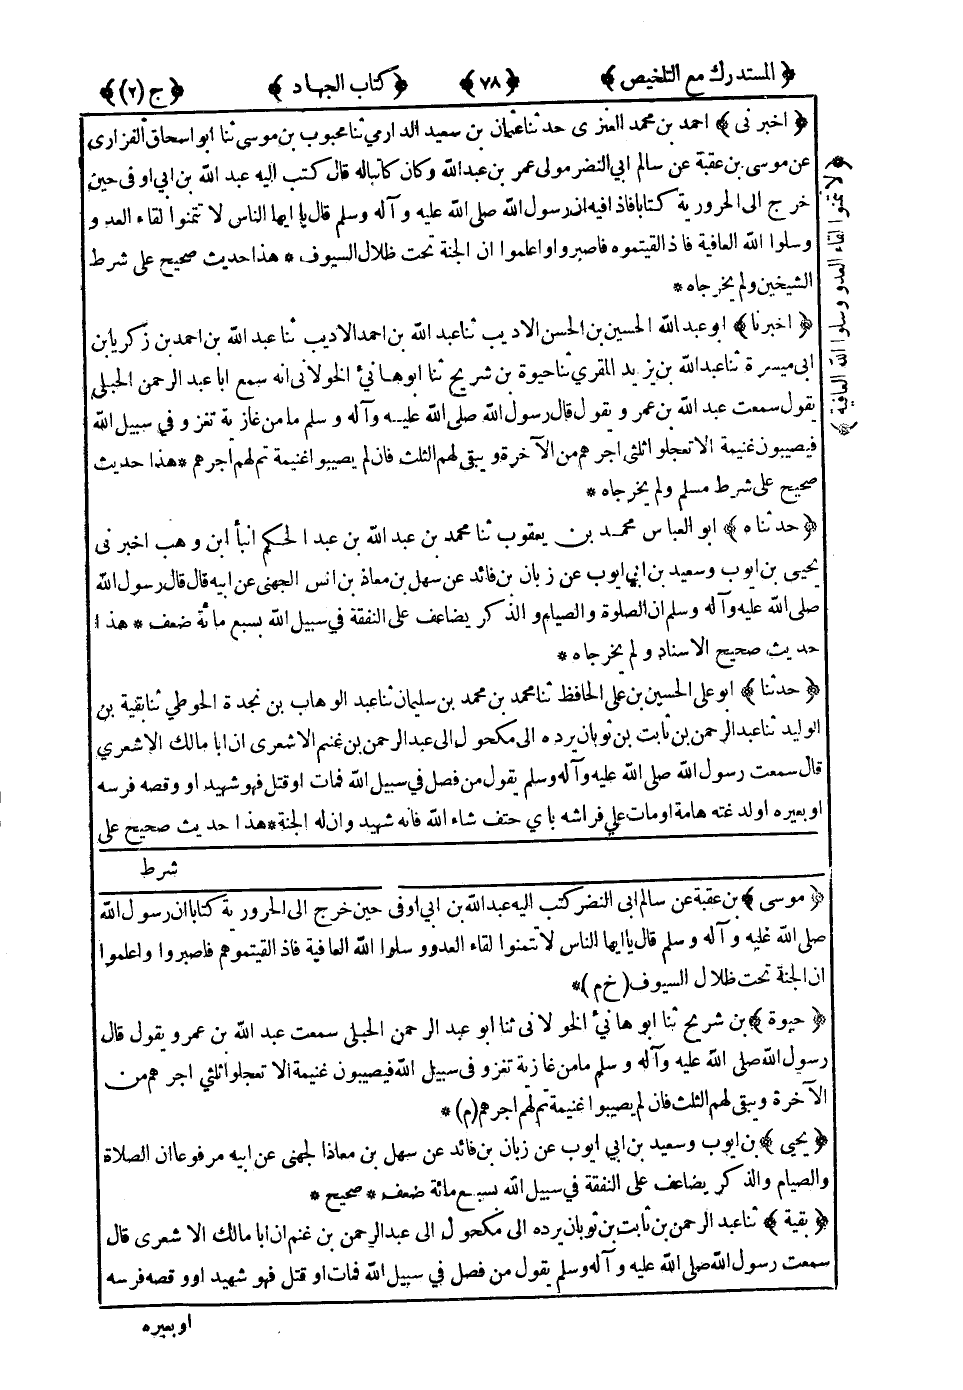 ﴿ المستدرك مع التلخيص ﴾ ﴿ ٧٨ ﴾ ﴿ كتاب الجهاد ﴾ ﴿ ج (٢) ﴾
﴿ اخبرنى ﴾ احمد بن محمد العنزى حدثنا عثمان بن سعيد الدارمي ثنا محبوب بن موسى ثنا ابو اسحاق الفزارى
عن موسى بن عقبة عن سالم ابي النضر مولى عمر بن عبد الله وكان كاتباله قال كتب اليه عبد الله بن ابي اوفى حين
خرج الى الحرورية كتابا فاذا فيه ان رسول الله صلى الله عليه وآله وسلم قال يا ايها الناس لا تتمنوا لقاء العدو
وسلوا الله العافية فاذ القيتموه فاصبروا واعلموا ان الجنة تحت ظلال السيوف * هذا حديث صحيح على شرط
الشيخين ولم يخرجاه *
﴿ اخبرنا ﴾ ابو عبد الله الحسين بن الحسن الاديب ثنا عبد الله بن احمد الاديب ثنا عبد الله بن احمد بن زكريا بن
ابى ميسرة ثنا عبد الله بن يزيد المقري ثنا حيوة بن شريح ثنا ابو هانيء الخولانى انه سمع ابا عبد الرحمن الحبلى
يقول سمعت عبد الله بن عمر و يقول قال رسول الله صلى الله عليه وآله وسلم ما من غازية تغزو في سبيل الله
فيصيبون غنيمة الا تعجلوا ثلثى اجرهم من الآخرة ويبقى لهم الثلث فان لم يصيبوا غنيمة تم لهم اجرهم * هذا حديث
صحيح على شرط مسلم ولم يخرجاه *
﴿ حدثناه ﴾ ابو العباس محمد بن يعقوب ثنا محمد بن عبد الله بن عبد الحكم انبأ ابن وهب اخبرنى
يحيى بن ايوب وسعيد بن ابي ايوب عن زبان بن فائد عن سهل بن معاذ بن انس الجهنى عن ابيه قال قال رسول الله
صلى الله عليه وآله وسلم ان الصلوة والصيام و الذكر يضاعف على النفقة في سبيل الله بسبع مائة ضعف * هذا
حديث صحيح الاسناد ولم يخرجاه *
﴿ حدثنا ﴾ ابو على الحسين بن على الحافظ ثنا محمد بن محمد بن سليمان ثنا عبد الوهاب بن نجدة الحوطي ثنا بقية بن
الوليد ثنا عبد الرحمن بن ثابت بن ثوبان يرده الى مكحول الى عبد الرحمن بن غنيم الاشعرى ان ابا مالك الاشعري
قال سمعت رسول الله صلى الله عليه وآله وسلم يقول من فصل في سبيل الله فمات او قتل فهو شهيد او وقصه فرسه
او بعيره اولدغته هامة اومات على فراشه باي حتف شاء الله فانه شهيد وان له الجنة * هذا حديث صحيح على
شرط
﴿ لا تتمنوا لقاء العدو وسلوا الله العافية ﴾
﴿ موسى ﴾ بن عقبة عن سالم ابى النضر كتب اليه عبد الله بن ابي اوفى حين خرج الى الحرورية كتابا ان رسول الله
صلى الله عليه وآله وسلم قال يا ايها الناس لا تتمنوا لقاء العدو وسلوا الله العافية فاذ القيتموهم فاصبروا واعلموا
ان الجنة تحت ظلال السيوف ( خ م ) *
﴿ حيوة ﴾ بن شريح ثنا ابو هانيء الخولانى ثنا ابو عبد الرحمن الحبلى سمعت عبد الله بن عمر و يقول قال
رسول الله صلى الله عليه وآله وسلم ما من غازية تغزو فى سبيل الله فيصيبون غنيمة الا تعجلوا ثلثي اجرهم من
الآخرة ويبقى لهم الثلث فان لم يصيبوا غنيمة تم لهم اجرهم (م) *
﴿ يحيى ﴾ بن ايوب وسعيد بن ابي ايوب عن زبان بن فائد عن سهل بن معاذ الجهنى عن ابيه مرفوعا ان الصلاة
والصيام والذكر يضاعف على النفقة في سبيل الله بسبع مائة ضعف * صحيح *
﴿ بقية ﴾ ثنا عبد الرحمن بن ثابت بن ثوبان يرده الى مكحول الى عبد الرحمن بن غنم ان ابا مالك الاشعرى قال
سمعت رسول الله صلى الله عليه وآله وسلم يقول من فصل في سبيل الله فمات او قتل فهو شهيد او وقصه فرسه
او بعيره